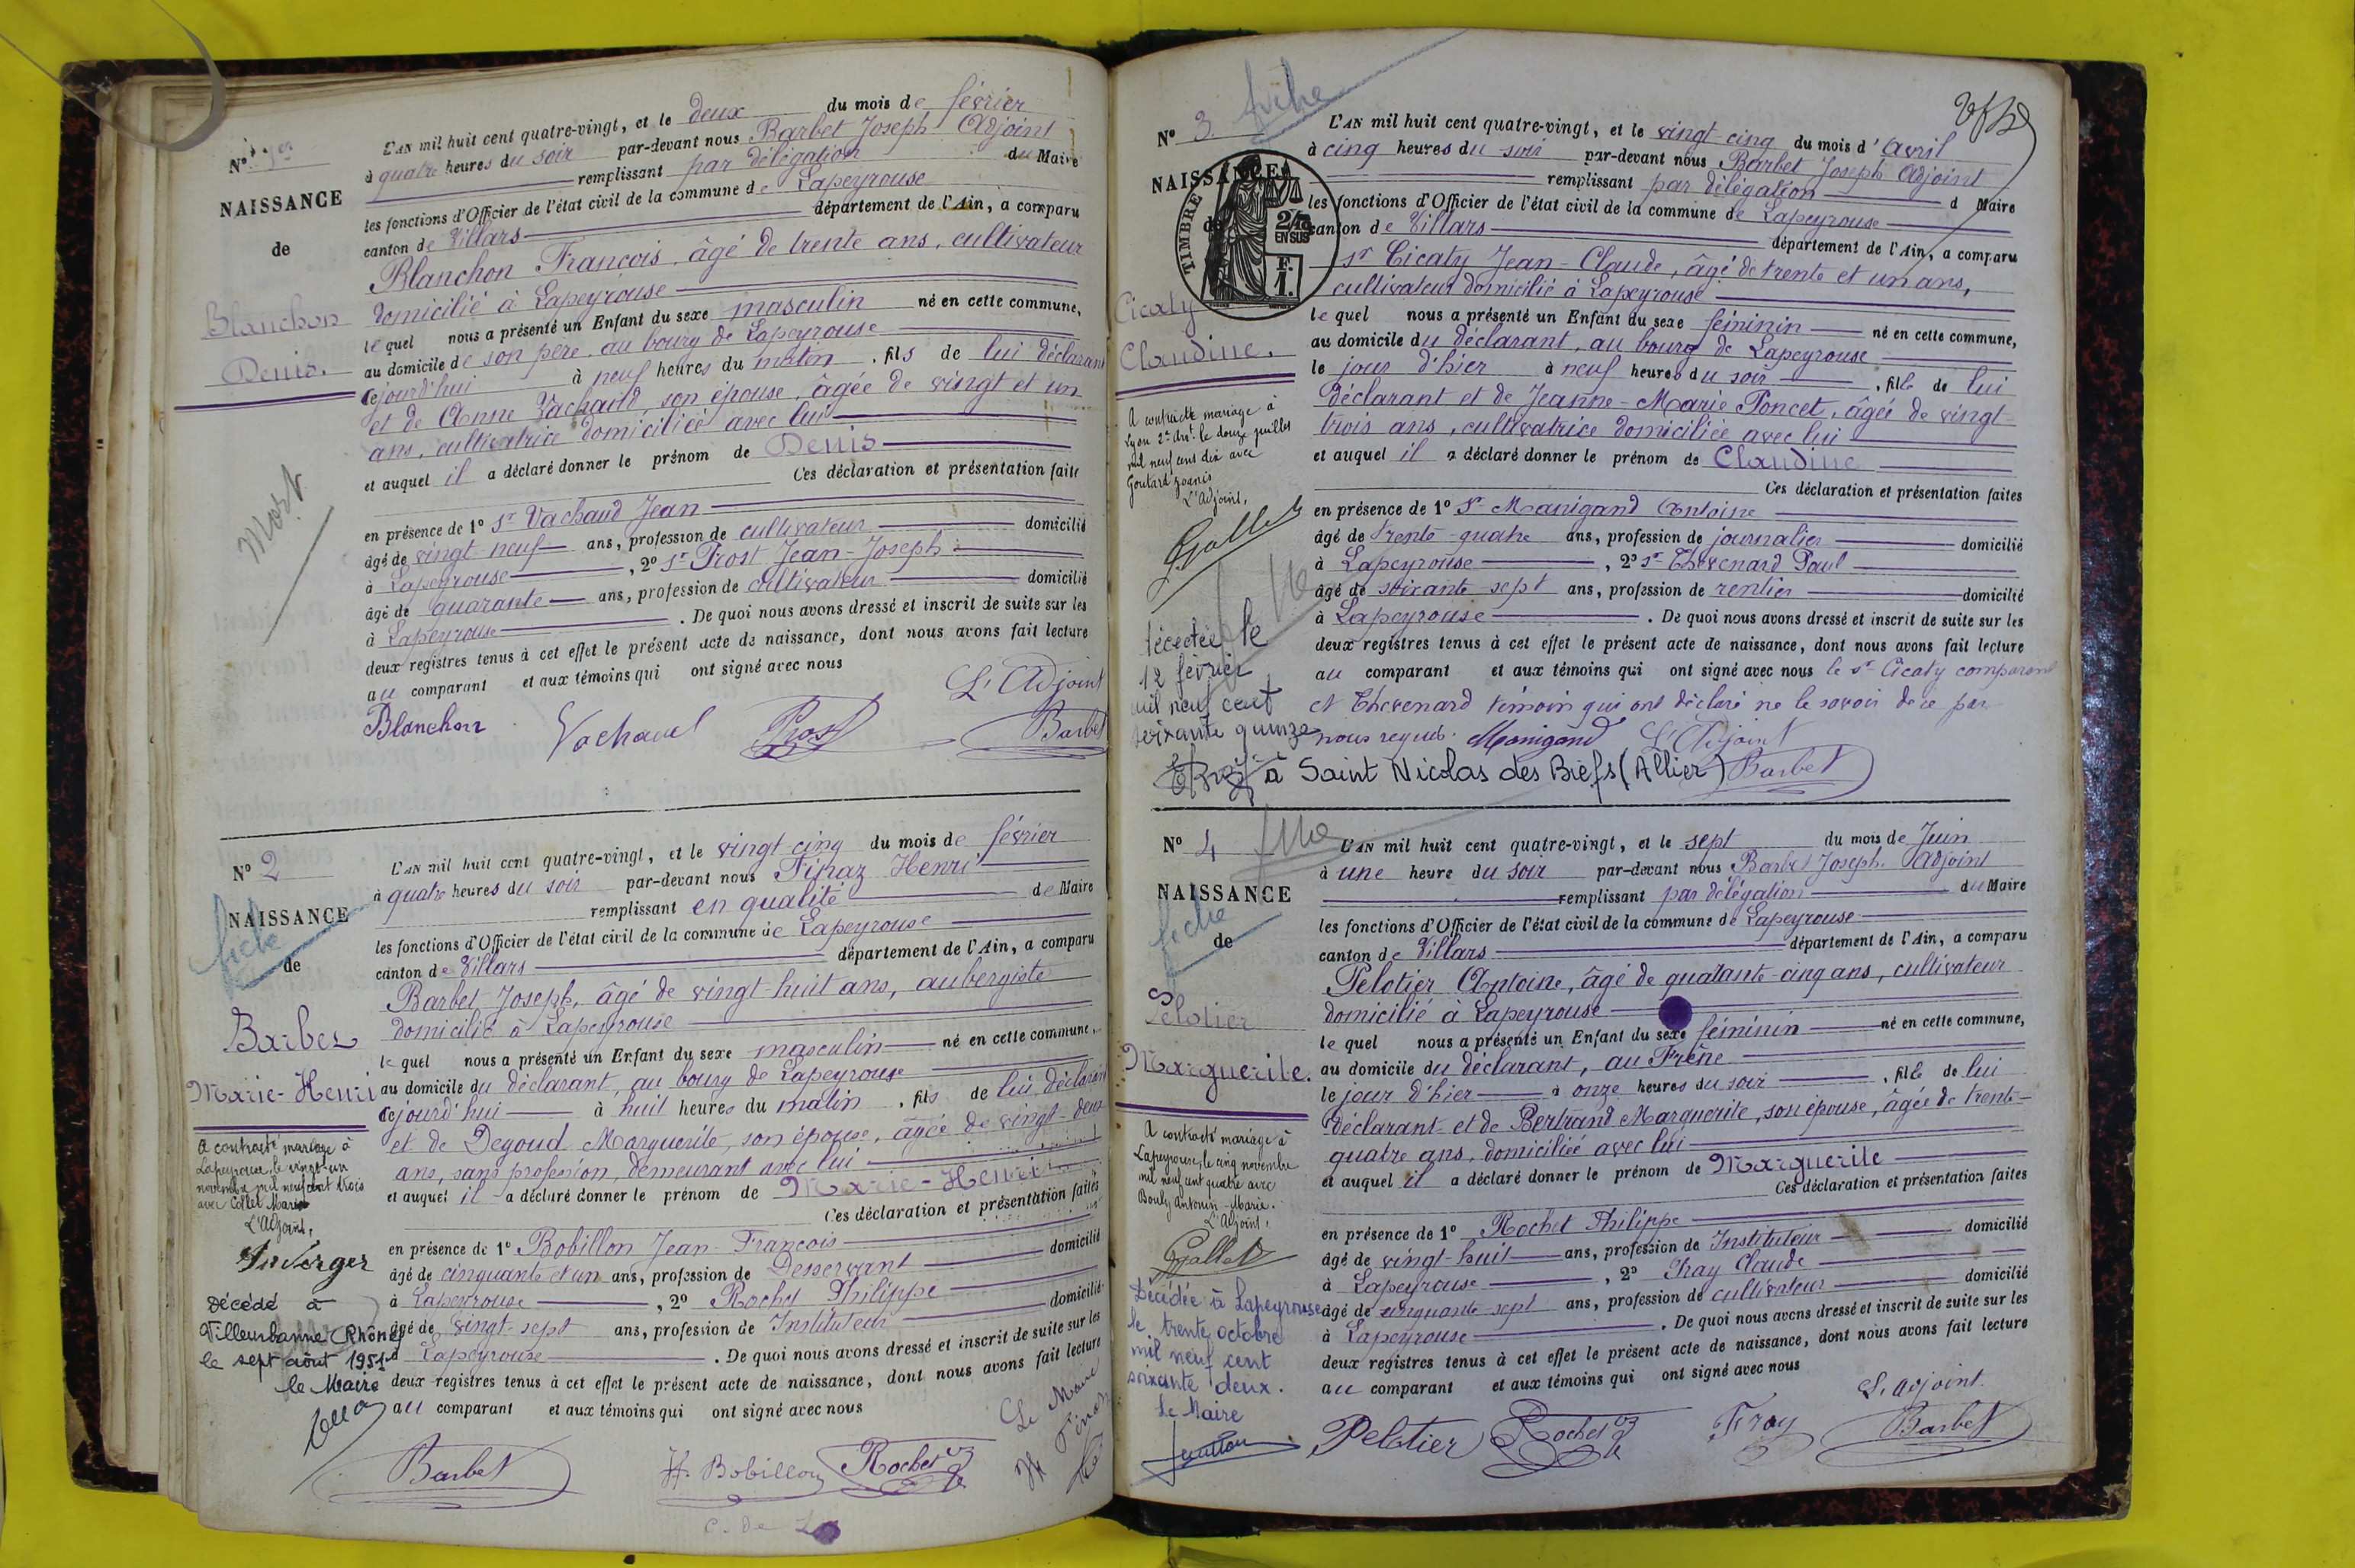 N° 1er
NAISSANCE
de
Blanchon
Denis.
Mort
L'AN mil huit cent quatre-vingt, et le deux du mois de février
à quatre heures du soir par-devant nous Barbet Joseph Adjoint
remplissant par délégation du Maire
les fonctions d'Officier de l'état civil de la commune de Lapeyrouse
canton de Villars département de l'Ain, a comparu
Blanchon François, âgé de trente ans, cultivateur
domicilié à Lapeyrouse
lequel nous a présenté un Enfant du sexe masculin né en cette commune,
au domicile de son père, au bourg de Lapeyrouse
cejourd'hui à neuf heures du matin, fils de lui déclarant
et de Anne Vachaud, son épouse, agée de vingt et un
ans, cultivatrice domiciliée avec lui
et auquel il a déclaré donner le prénom de Denis
Ces déclaration et présentation faite
en présence de 1° Sr Vachaud Jean
âgé de vingt-neuf ans, profession de cultivateur domicilié
à Lapeyrouse, 2° Sr Prost Jean-Joseph
âgé de quarante ans, profession de cultivateur domicilié
à Lapeyrouse. De quoi nous avons dressé et inscrit de suite sur les
deux registres tenus à cet effet le présent acte de naissance, dont nous avons fait lecture
au comparant et aux témoins qui ont signé avec nous
L'Adjoint
Blanchon Vachaud Prost Barbet
N° 2
NAISSANCE
fiche
de
Barbet
Marie-Henri
A contracté mariage à
Lapeyrouse, le vingt-un
novembre mil neuf cent trois
avec Collet Marie
L'Adjoint,
Décédé à
Villeurbanne (Rhône)
le sept août 1951
le Maire
L'AN mil huit cent quatre-vingt, et le vingt-cinq du mois de février
à quatre heures du soir par-devant nous Henri
remplissant en qualité de Maire
les fonctions d'Officier de l'état civil de la commune de Lapeyrouse
canton de Villars département de l'Ain, a comparu
Barbet Joseph, âgé de vingt-huit ans, aubergiste
domicilié à Lapeyrouse
lequel nous a présenté un Enfant du sexe masculin né en cette commune,
au domicile du déclarant, au bourg de Lapeyrouse
cejourd'hui à huit heures du matin, fils de lui déclarant
et de Degoud Marguerite, son épouse, agée de vingt-deux
ans, sans profession, demeurant avec lui
et auquel il a déclaré donner le prénom de Marie-Henri
Ces déclaration et présentation faites
en présence de 1° Bobillon Jean-François
âgé de cinquante et un ans, profession de Desservant domicilié
à Lapeyrouse, 2° Rochet Philippe
âgé de vingt-sept ans, profession de Instituteur domicilié
à Lapeyrouse. De quoi nous avons dressé et inscrit de suite sur les
deux registres tenus à cet effet le présent acte de naissance, dont nous avons fait lecture
au comparant et aux témoins qui ont signé avec nous
Le Maire
Barbet Bobillon Rochet
N° 3
fiche
NAISSANCE
de
TIMBRE
2/10
EN SUS
F.
1.
Cicaty
Claudine.
A contracté mariage à
Lyon 2e Arrt le douze juillet
mil neuf cent dix avec
Goutard Joanès
L'Adjoint,
Gallet
Décédée le
12 février
mil neuf cent
soixante quinze
à Saint Nicolas des Biefs (Allier)
L'AN mil huit cent quatre-vingt, et le vingt-cinq du mois d'Avril
à cinq heures du soir par-devant nous Barbet Joseph Adjoint
remplissant par délégation d Maire
les fonctions d'Officier de l'état civil de la commune de Lapeyrouse
canton de Villars département de l'Ain, a comparu
Sr Cicaty Jean-Claude, âgé de trente et un ans,
cultivateur domicilié à Lapeyrouse
lequel nous a présenté un Enfant du sexe féminin né en cette commune,
au domicile du déclarant, au bourg de Lapeyrouse
le jour d'hier à neuf heures du soir, fille de lui
déclarant et de Jeanne-Marie Poncet, âgée de vingt-
trois ans, cultivatrice domiciliée avec lui
et auquel il a déclaré donner le prénom de Claudine
Ces déclaration et présentation faites
en présence de 1° Sr Manigand Antoine
âgé de trente-quatre ans, profession de journalier domicilié
à Lapeyrouse, 2° Sr Thevenard Paul
âgé de soixante sept ans, profession de rentier domicilié
à Lapeyrouse. De quoi nous avons dressé et inscrit de suite sur les
deux registres tenus à cet effet le présent acte de naissance, dont nous avons fait lecture
au comparant et aux témoins qui ont signé avec nous le Sr Cicaty comparant
et Thevenard témoin qui ont déclaré ne le savoir de ce par
nous requis. Manigand L'Adjoint
Barbet
N° 4
NAISSANCE
fiche
de
Pelotier
Marguerite.
A contracté mariage à
Lapeyrouse, le cinq novembre
mil neuf cent quatre avec
Bouly Antonin-Marie.
L'Adjoint,
Gallet
Décédée à Lapeyrouse
le trente octobre
mil neuf cent
soixante deux.
Le Maire
L'AN mil huit cent quatre-vingt, et le sept du mois de Juin
à une heure du soir par-devant nous Barbet Joseph Adjoint
remplissant par délégation du Maire
les fonctions d'Officier de l'état civil de la commune de Lapeyrouse
canton de Villars département de l'Ain, a comparu
Pelotier Antoine, âgé de quarante-cinq ans, cultivateur
domicilié à Lapeyrouse
lequel nous a présenté un Enfant du sexe féminin né en cette commune,
au domicile du déclarant, au Frêne
le jour d'hier à onze heures du soir, fille de lui
déclarant et de Bertrand Marguerite, son épouse, âgée de trente-
quatre ans, domiciliée avec lui
et auquel il a déclaré donner le prénom de Marguerite
Ces déclaration et présentation faites
en présence de 1° Rochet Philippe
âgé de vingt-huit ans, profession de Instituteur domicilié
à Lapeyrouse, 2° Fray Claude
âgé de cinquante sept ans, profession de cultivateur domicilié
à Lapeyrouse. De quoi nous avons dressé et inscrit de suite sur les
deux registres tenus à cet effet le présent acte de naissance, dont nous avons fait lecture
au comparant et aux témoins qui ont signé avec nous
L'adjoint
Pelotier Rochet Fray Barbet